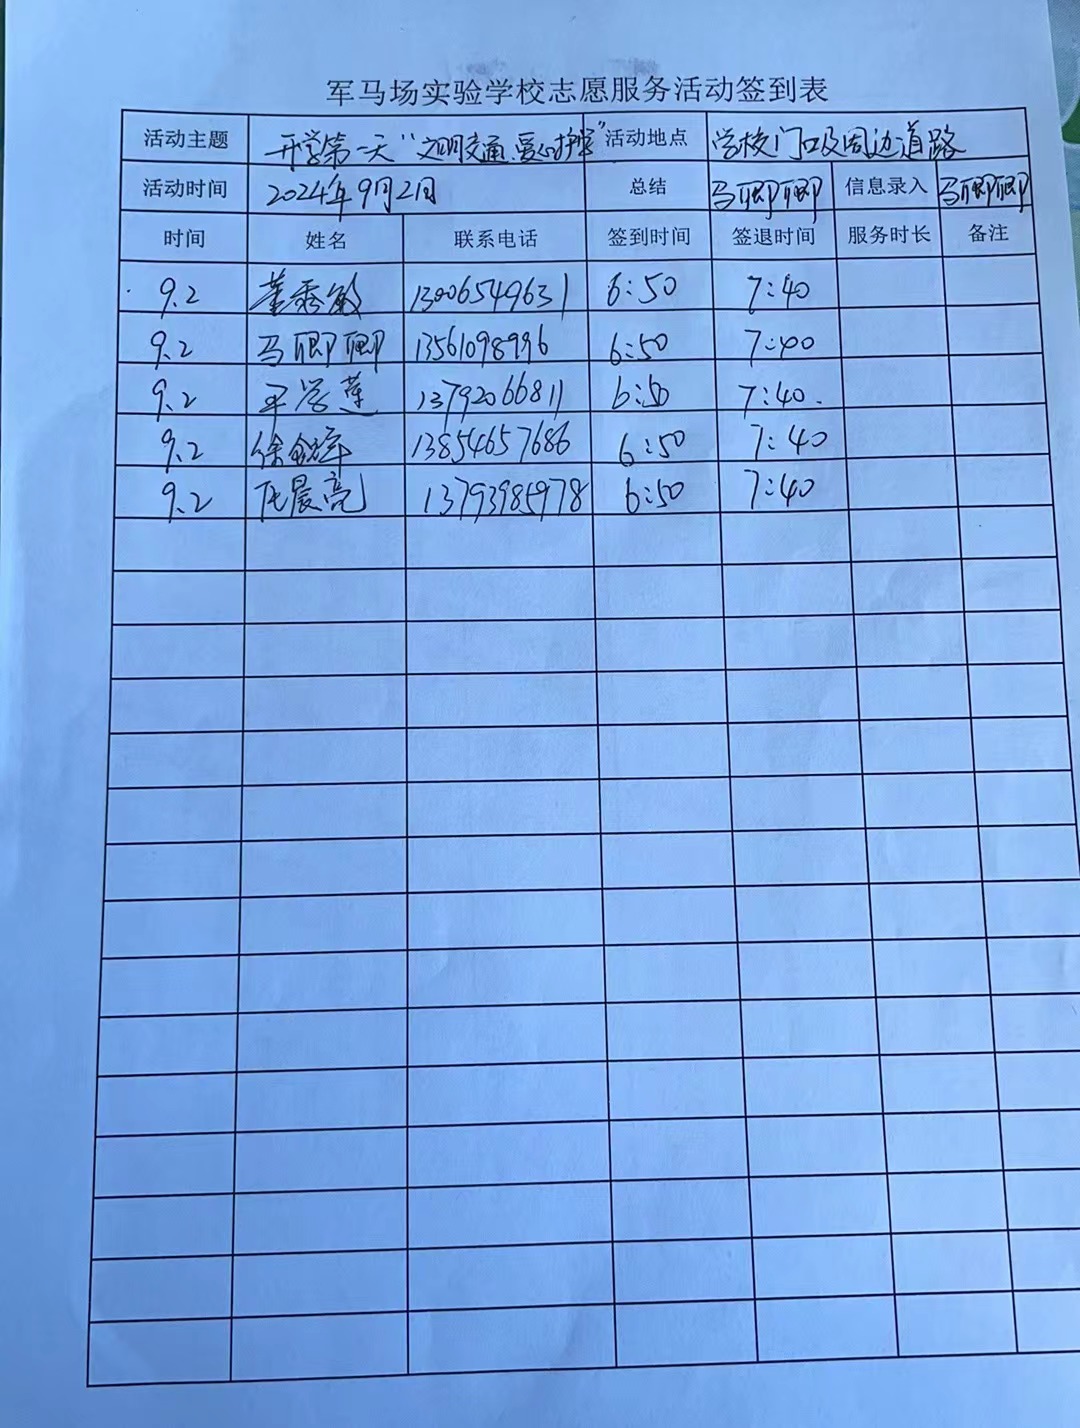 军马场实验学校志愿服务活动签到表
活动主题 开学第一天“文明交通,爱心护学” 活动地点 学校门口及周边道路
活动时间 2024年9月2日 总结 马卿卿 信息录入 马卿卿
时间 姓名 联系电话 签到时间 签退时间 服务时长 备注
9.2 董秀敏 13006549631 6:50 7:40
9.2 马卿卿 13561098996 6:50 7:40
9.2 平学莲 13792066811 6:50 7:40.
9.2 徐 军 13854657686 6:50 7:40
9.2 晨亮 13793985978 6:50 7:40